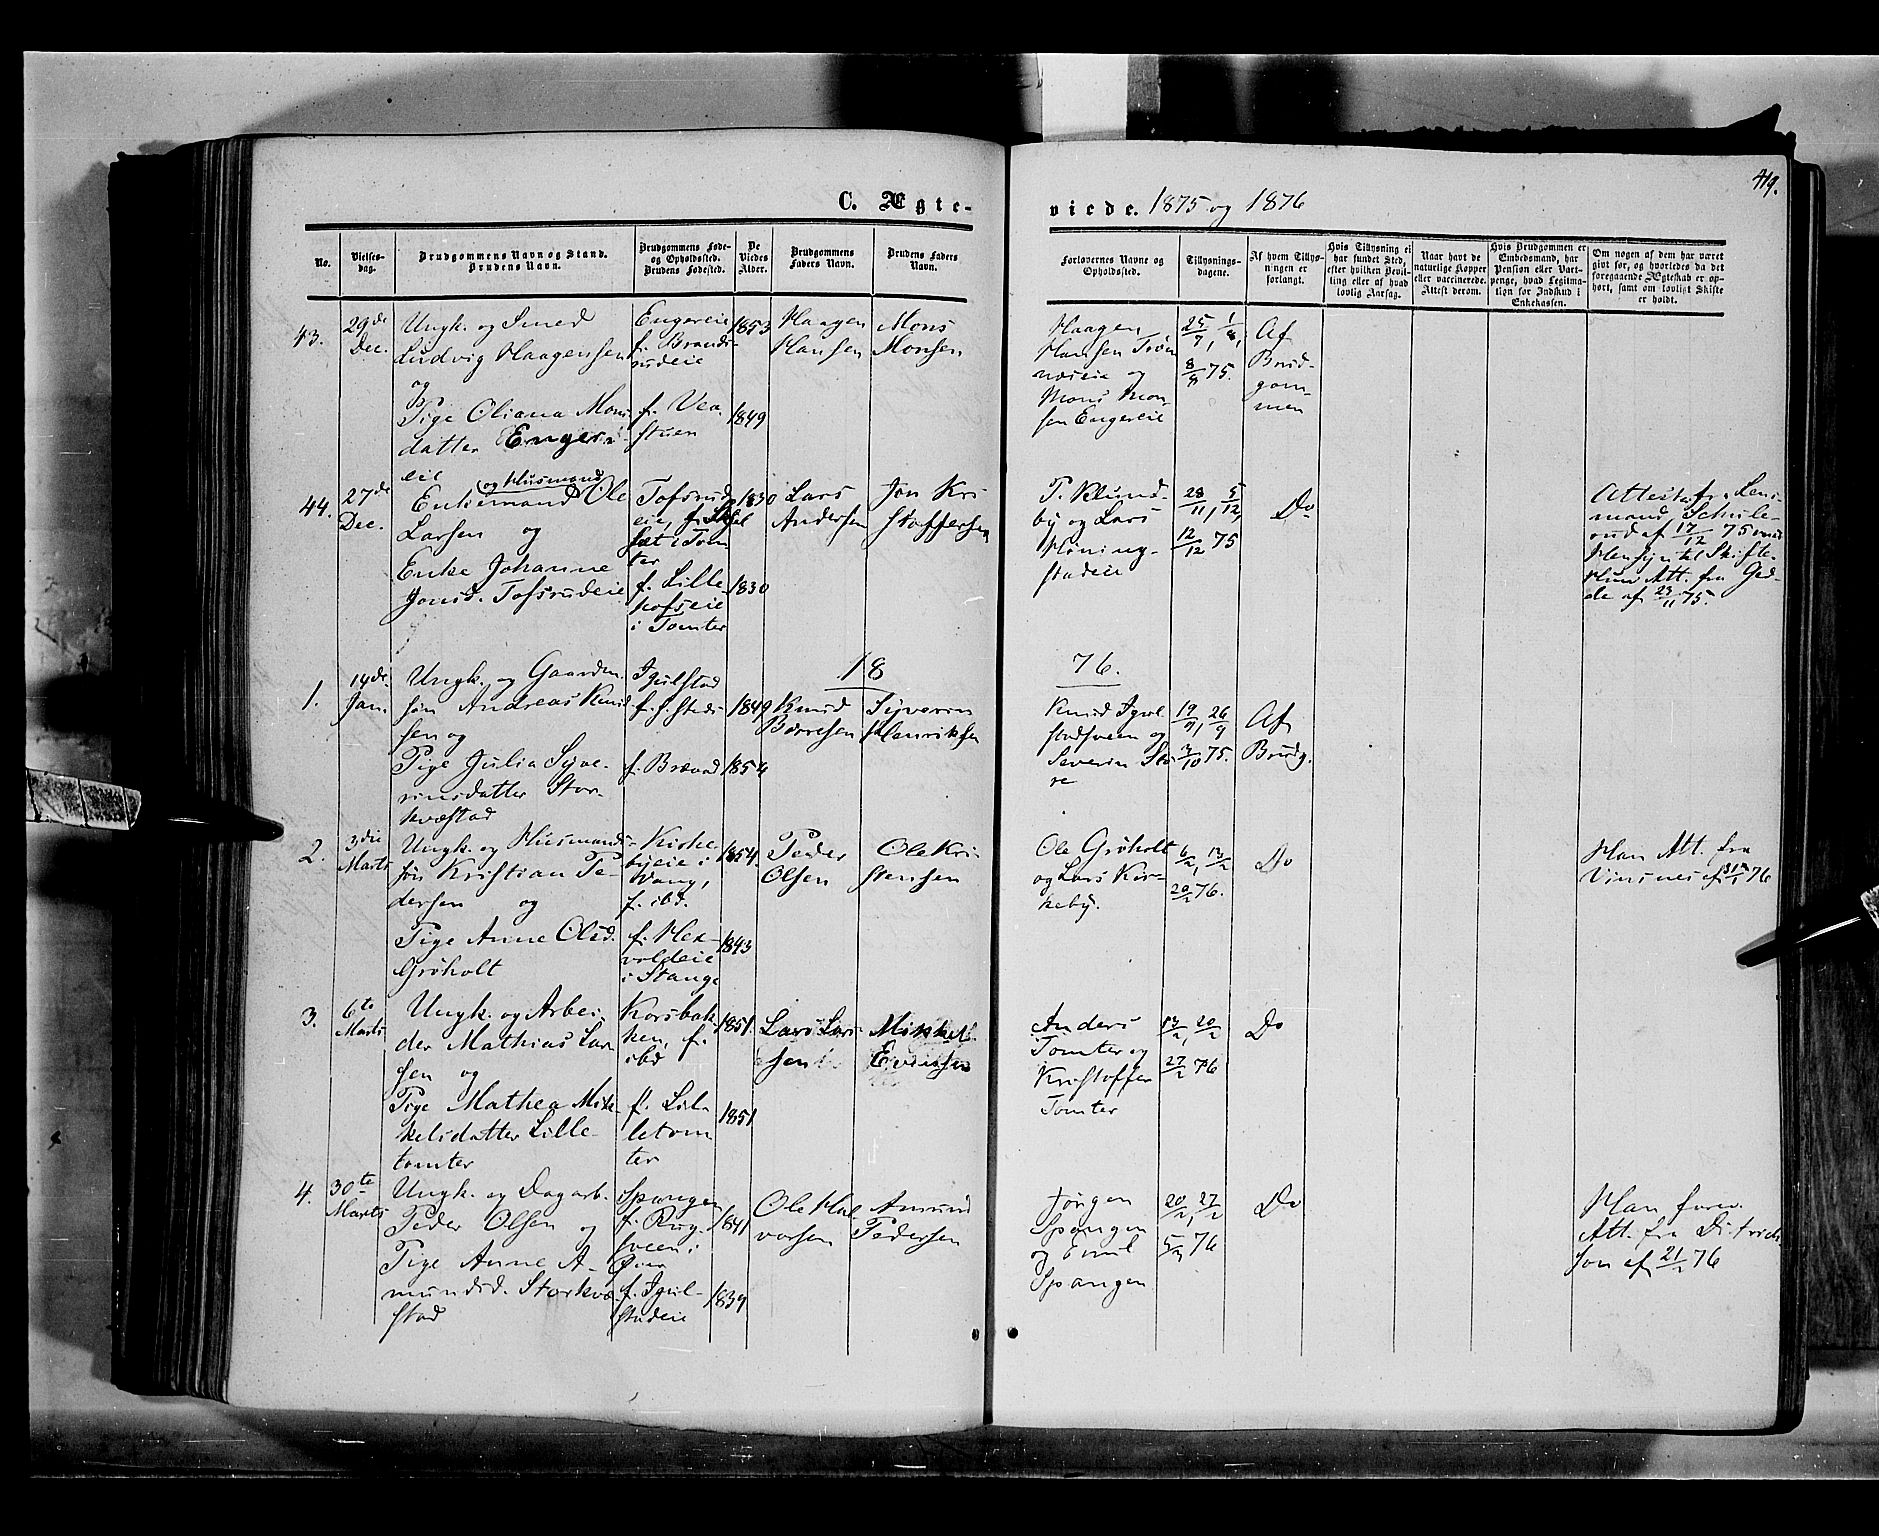 419.
C. Ægte-
viede. 1875 og 1876
No.
Vielses-
dag.
Brudgommens Navn og Stand.
Brudens Navn.
Brudgommens Føde-
og Opholdssted.
Brudens Fødested.
De
Viedes
Alder.
Brudgommens
Faders Navn.
Brudens Faders
Navn.
Forlovernes Navne og
Opholdssted.
Tillysnings-
dagene.
Af hvem Tillys-
ningen er
forlangt.
Hvis Tillysning ei
har fundet Sted,
efter hvilken Bevil-
ling eller af hvad
lovlig Aarsag.
Naar havt de
naturlige Kopper
eller vaccinerede.
Attest derom.
Hvis Brudgommen er
Embedsmand, har
Pension eller Vart-
penge, hvad Legitima-
tion for Indskud i
Enkekassen.
Om nogen af dem har været
gift før, og hvorledes da det
foregaaende Ægteskab er op-
hørt, samt om lovligt Skifte
er holdt.
43.
29de
Dec.
Ungk. og Smed
Ludvig Haagensen
og
Pige Oliana Mons-
datter Engers-
eie
Engereie
f. Brands-
rudeie
f. Vea-
stuen
1853
1849
Haagen
Hansen
Mons
Monsen
Haagen
Hansen Trøn-
næseie og
Mons Mon-
sen Engereie
25/7, 1/8,
8/8 75.
Af
Brud-
gom-
men
44.
27de
Dec.
(og Husmand)
Enkemand Ole
Larsen og
Enke Johanne
Jonsd. Tofsrudeie
Tofsrud-
eie, f.
sæt i Tom-
ter
f. Lille-
hofseie
i Tomter
1830
1830
Lars
Andersen
Jon Kri-
stoffersen
P. Klund-
by og Lars
Høning-
stadeie
28/11, 5/12,
12/12 75
Do
Attest fra Lens-
mand Schule-
rud af 17/12 75 med
Hensyn til Skifte.
Hun Att. fra Ged-
de af 23/11 75.
18
76.
1.
14de
Jan.
Ungk. og Gaardm.
søn Andreas Knud-
sen og
Pige Julia Syve-
rinsdatter Stor-
kvæstad
Igulstad
f. s. steds
f. Brævad
1849
1854
Knud
Børresen
Syverin
Henriksen
Knud Igul-
stadsveen og
Severin Sto-
re
19/9, 26/9
3/10 75.
Af
Brudg.
2.
3die
Marts
Ungk. og Husmands-
søn Kristian Pe-
dersen og
Pige Anne Olsd.
Grøholt
Kirke-
byeie i
Vang,
f. ibd.
f. Hex-
voldeie
i Stange
1854.
1843
Peder
Olsen
Ole Kri-
stensen
Ole Grøholt
og Lars Kir-
keby.
6/2, 13/2
20/2 76.
Do
Han Att. fra
Vinsnes af 31/1 76
3.
6te
Marts
Ungk. og Arbei-
der Mathias Lar-
sen og
Pige Mathea Mik-
kelsdatter Lille-
tomter
Korsbak-
ken, f.
ibd
f. Lil-
letom-
ter
1851.
1851
Lars Lar-
sen
Mikkel
Evensen
Anders
Tomter og
Kristoffer
Tomter
13/2, 20/2
27/2 76
Do
4.
30te
Marts
Ungk. og Dagarb.
Peder Olsen og
Pige Anne A-
mundsd. Storkvæ-
stad
Spangen
f. Rug-
sveen i
Øier
f. Igul-
stadeie
1841
1839
Ole Hal-
vorsen
Amund
Pedersen
Jørgen
Spangen
og Emil
Spangen
20/2, 27/2
5/3 76
Do
Han forev.
Att. fra Ditrich-
son af 21/2 76